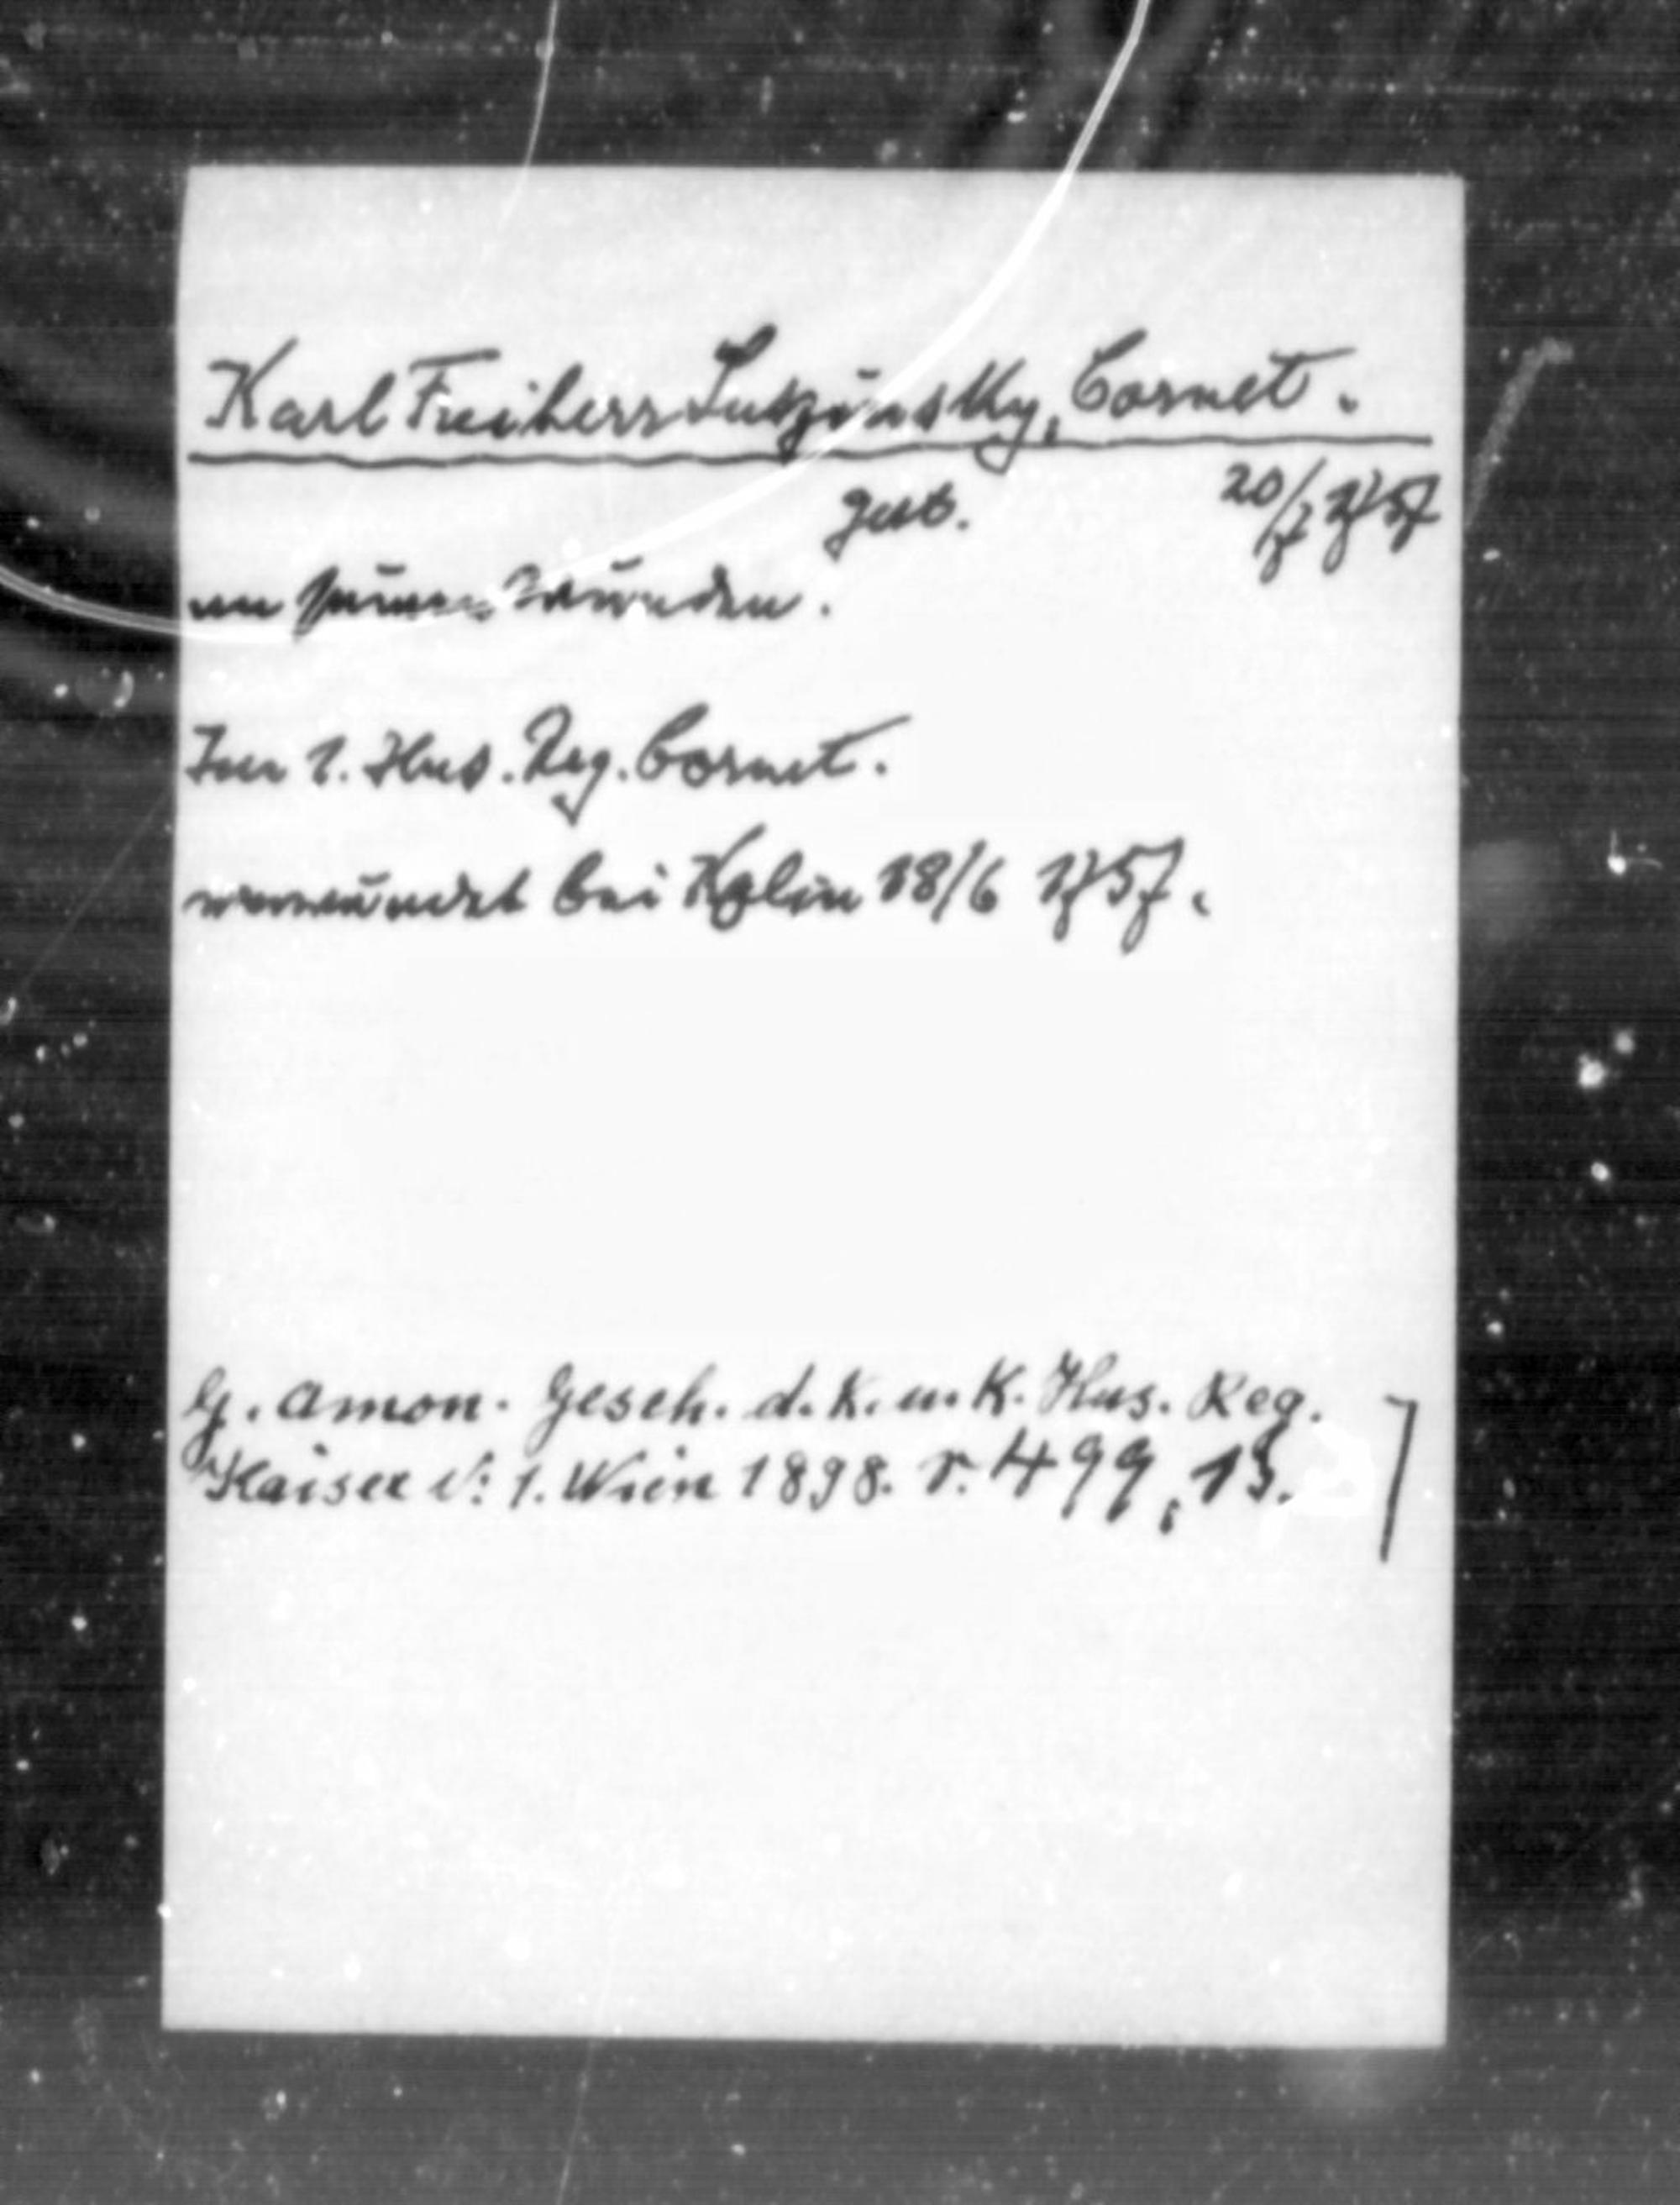 Karl Freiherr Lutzinsky, Cornet.
gest. 20/7 1757
an seinen Wunden.
Im 1. Hus. Reg. Cornet.
verwundet bei Kolin 18/6 1757.
G. Amon. Gesch. d. K. u. K. Hus. Reg.
Kaiser N: 1. Wien 1898. S. 499, 13.